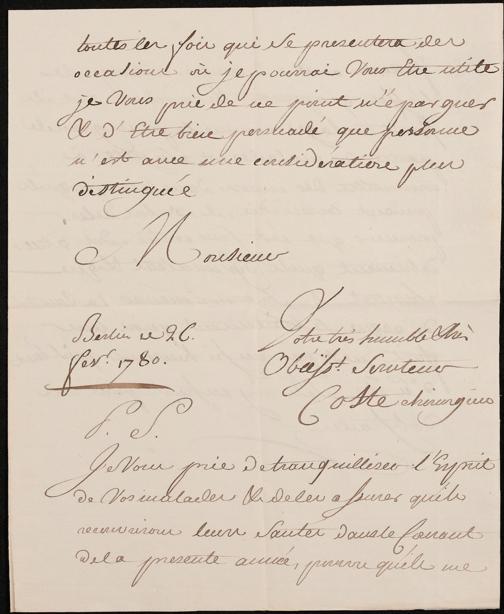 toutes les fois qui se presentera des
occasions où je pourrai Vous Etre utile
je Vous prie de ne point m'épargner
& d'Etre bien persuadé que personne
n'est avec une consideration plus
distinguée
Monsieur
Votre très humble & très
Berlin ce 26.
Obéisst. Serviteur
fevr. 1780.
Coste chirurgien
P. S.
Je Vous prie de tranquilliser l'Esprit
de Vos malades & de les assurer qu'ils
recouvrirons leurs Santés dans le Courant
de la presente année, pourvu qu'ils me